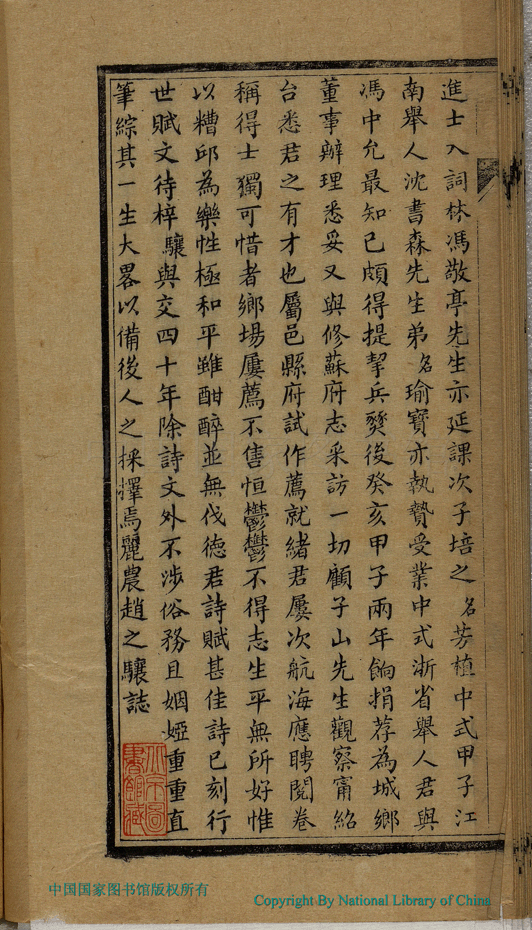 進士入詞林馮敬亭先生亦延課次子培之名芳植中式甲子江
南舉人沈書森先生弟名瑜寶亦執贄受業中式浙省舉人君與
馮中允最知已頗得提挈兵燹後癸亥甲子兩年餉捐荐為城鄉
董事辦理悉妥又與修蘇府志采訪一切顧子山先生觀察甯紹
台悉君之有才也屬邑縣府試作薦就緒君屢次航海應聘閱卷
稱得士獨可惜者鄉場屢薦不售恒鬱鬱不得志生平無所好惟
以糟邱為樂性極和平雖酣醉並無伐德君詩賦甚佳詩已刻行
世賦文待梓驤與交四十年除詩文外不涉俗務且姻婭重重直
筆綜其一生大畧以備後人之採擇焉麗農趙之驤誌
北京圖書館藏
中国国家图书馆版权所有
Copyright By National Library of China